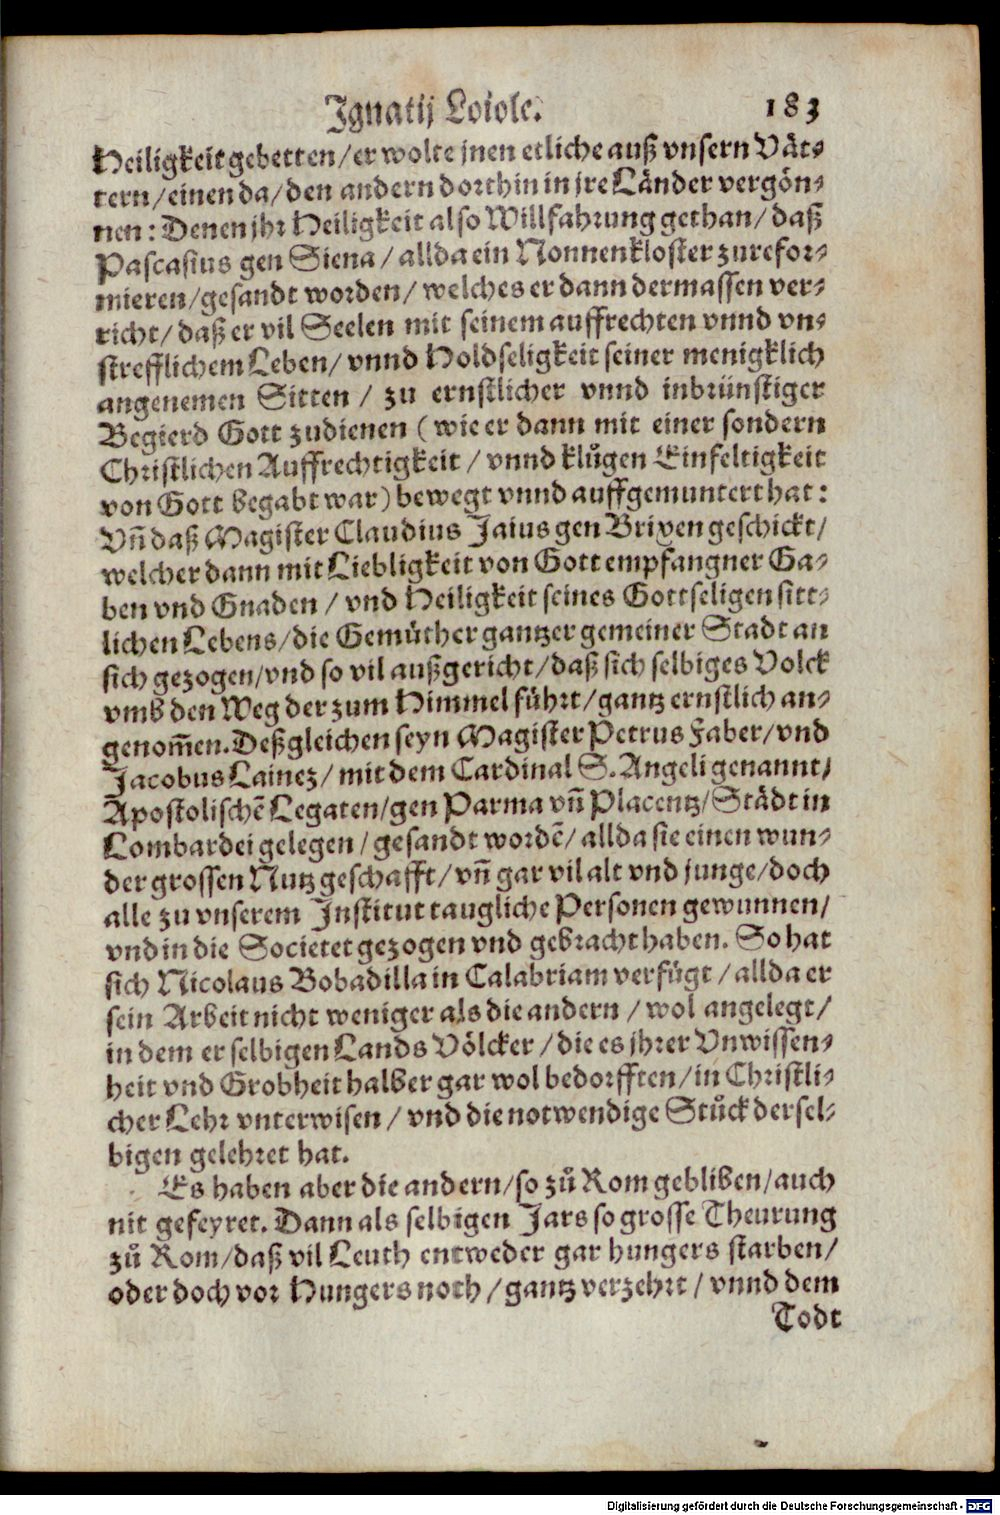 Ignatij Loiole. 183
Heiligkeit gebetten/er wolte jnen etliche auß vnsern Våt-
tern/einen da/den andern dorthin in jre Länder vergön-
nen: Denen jhr Heiligkeit also Willfahrung gethan/daß
Pascasius gen Siena/allda ein Nonnenkloster zurefor-
mieren/gesandt worden/welches er dann dermassen ver-
richt/daß er vil Seelen mit seinem auffrechten vnnd vn-
strefflichem Leben/vnnd Holdseligkeit seiner menigklich
angenemen Sitten/zu ernstlicher vnnd inbrünstiger
Begierd Gott zudienen (wie er dann mit einer sondern
Christlichen Auffrechtigkeit/vnnd klůgen Einfeltigkeit
von Gott begabt war) bewegt vnnd auffgemuntert hat:
Vn̄ daß Magister Claudius Jaius gen Brixen geschickt/
welcher dann mit Liebligkeit von Gott empfangner Ga-
ben vnd Gnaden/vnd Heiligkeit seines Gottseligen sitt-
lichen Lebens/die Gemüther gantzer gemeiner Stadt an
sich gezogen/vnd so vil außgericht/daß sich selbiges Volck
vmb den Weg der zum Himmel führt/gantz ernstlich an-
genom̄en. Deßgleichen seyn Magister Petrus Faber/vnd
Jacobus Lainez/mit dem Cardinal S. Angeli genannt/
Apostolischē Legaten/gen Parma vn̄ Placentz/Städt in
Lombardei gelegen/gesandt wordē/allda sie einen wun-
der grossen Nutz geschafft/vn̄ gar vil alt vnd junge/doch
alle zu vnserem Institut taugliche Personen gewunnen/
vnd in die Societet gezogen vnd gebracht haben. So hat
sich Nicolaus Bobadilla in Calabriam verfügt/allda er
sein Arbeit nicht weniger als die andern/wol angelegt/
in dem er selbigen Lands Völcker/die es jhrer Vnwissen-
heit vnd Grobheit halber gar wol bedorfften/in Christli-
cher Lehr vnterwisen/vnd die notwendige Stůck dersel-
bigen gelehret hat.
Es haben aber die andern/so zů Rom gebliben/auch
nit gefeyret. Dann als selbigen Jars so grosse Theurung
zů Rom/daß vil Leuth entweder gar hungers starben/
oder doch vor Hungersnoth/gantz verzehrt/vnnd dem
Todt
Digitalisierung gefördert durch die Deutsche Forschungsgemeinschaft - DFG